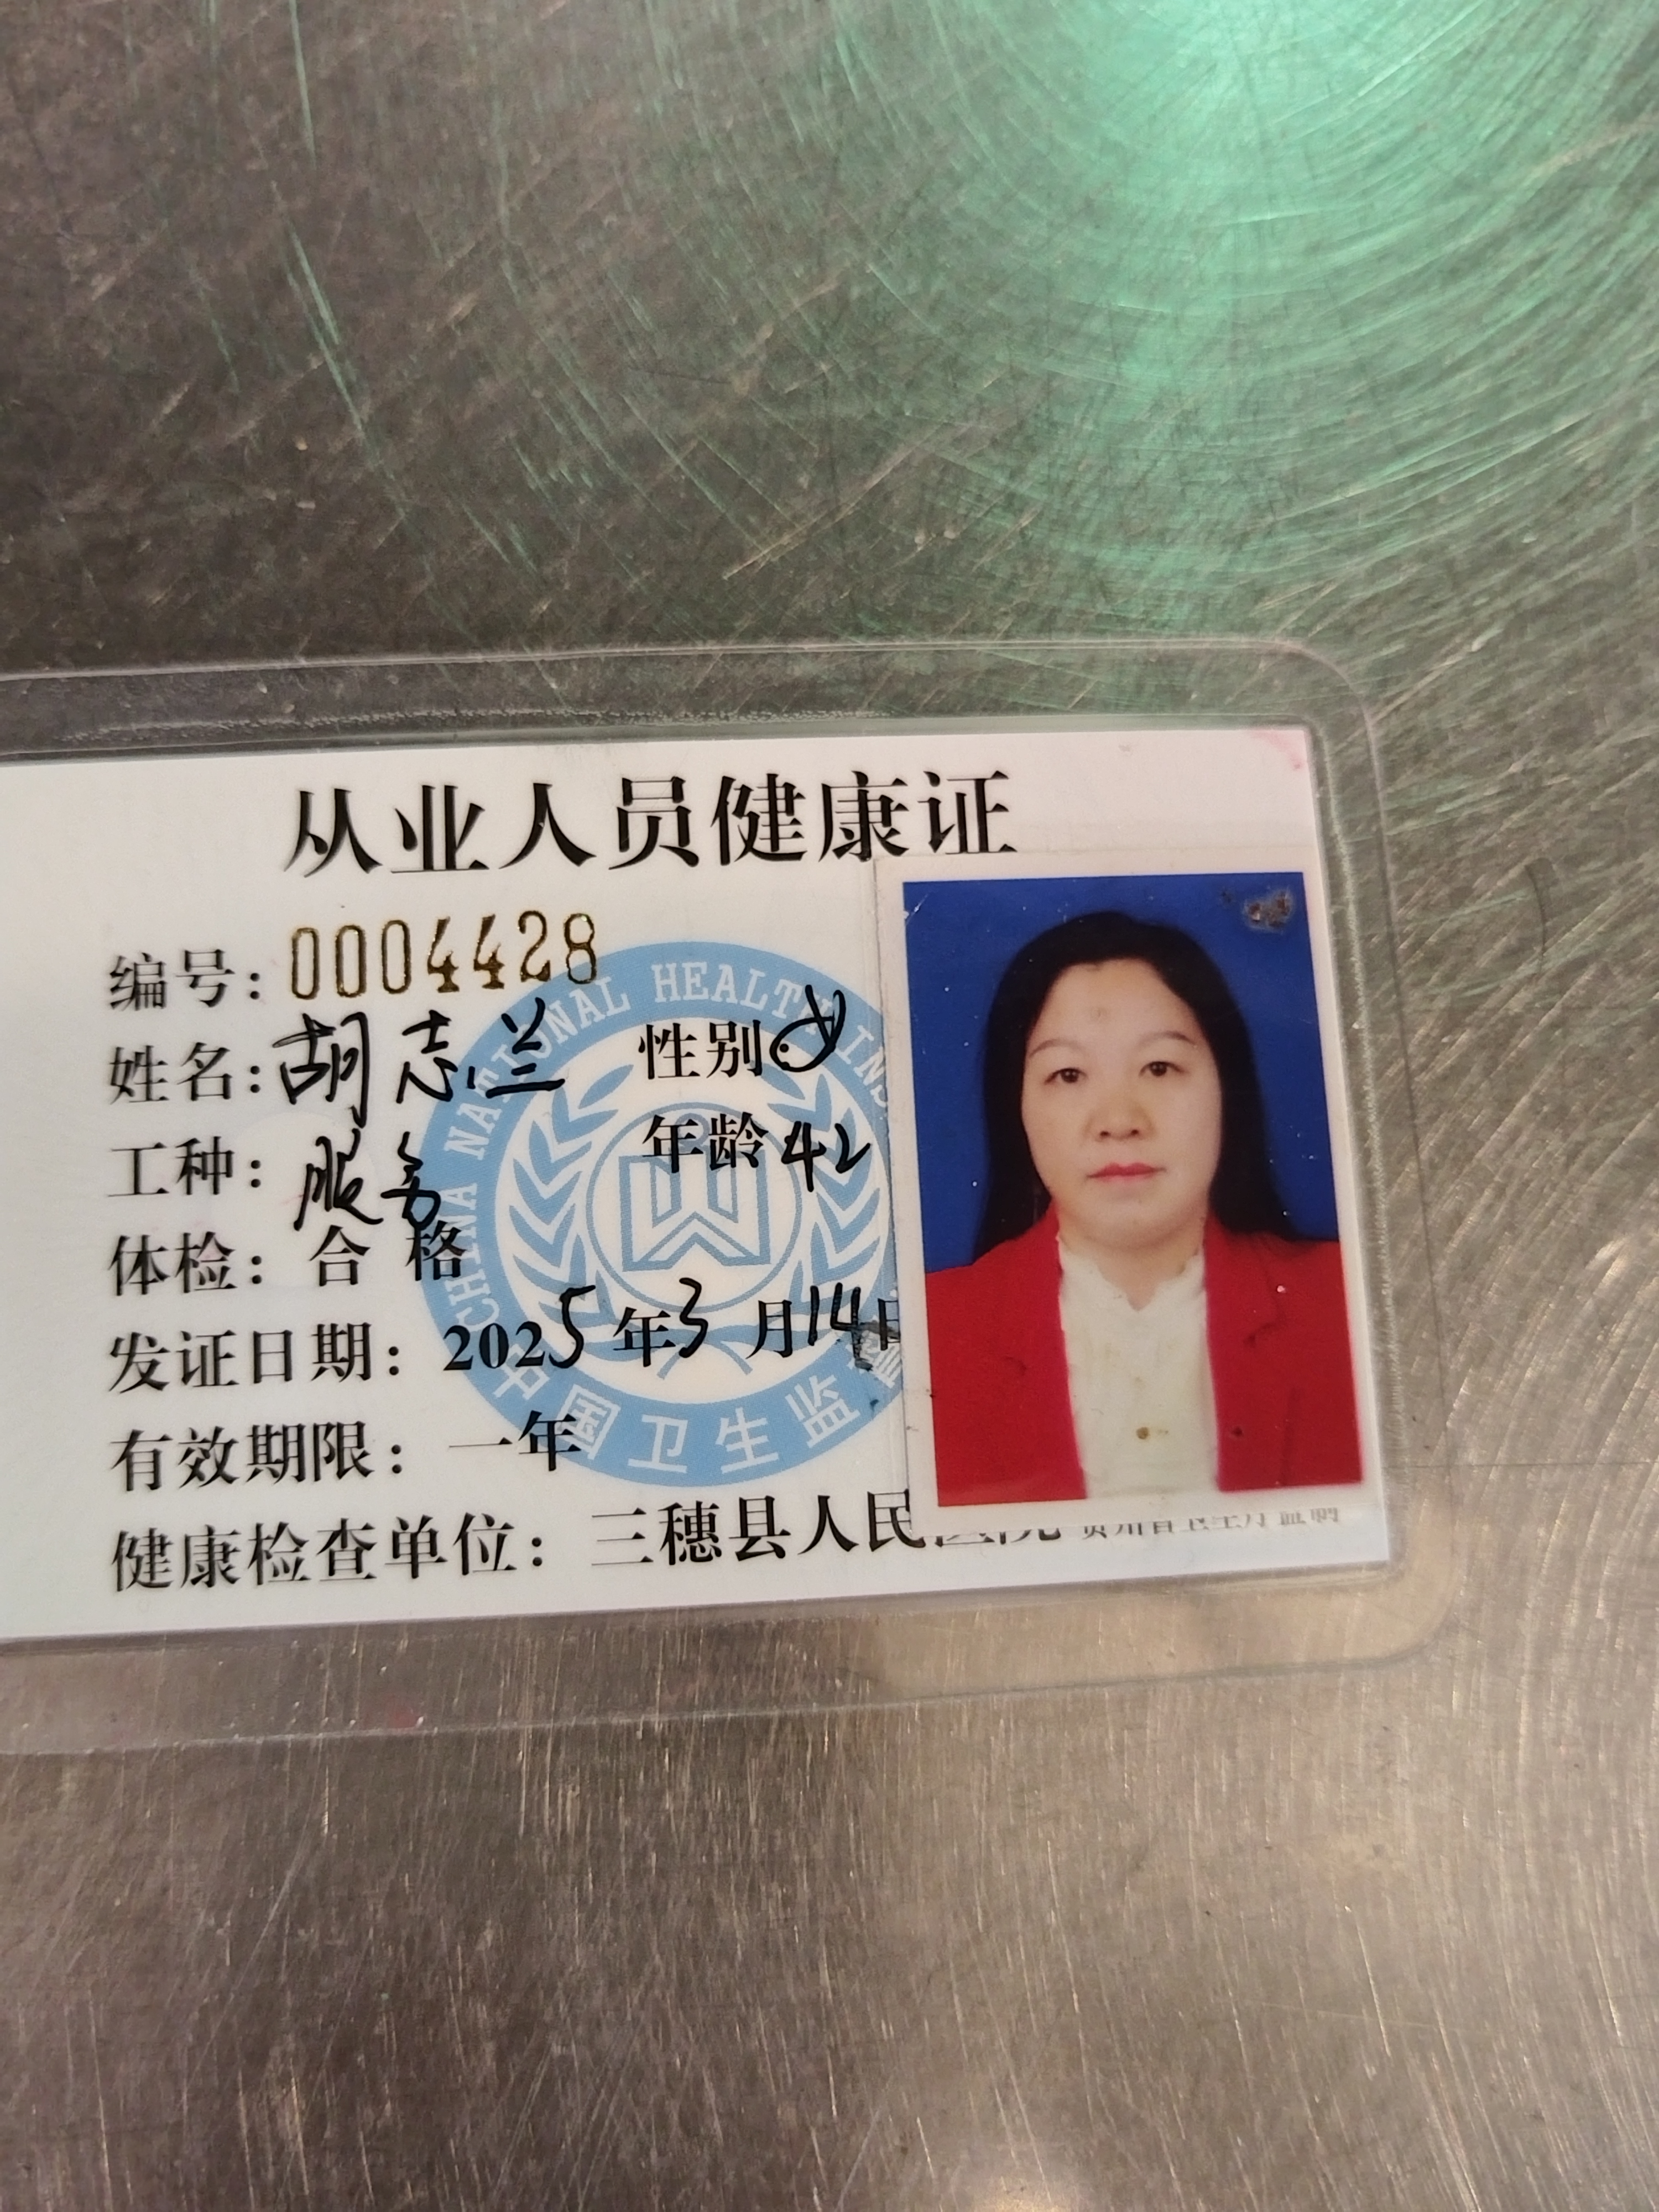 从业人员健康证
编号：0004428
姓名：胡志兰 性别：女
工种：服务 年龄 42
体检：合格
发证日期：2025年3月14日
有效期限：一年
健康检查单位：三穗县人民医院 贵州省卫生厅监制
CHINA NATIONAL HEALTH INS
中国卫生监督